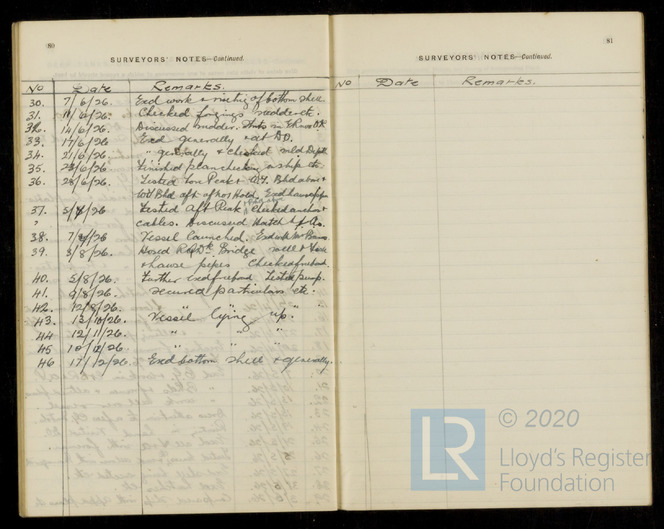 80
SURVEYORS' NOTES—Continued.
No Date Remarks.
30. 7/6/26. Exd work & riveting of bottom shell
31. 11/6/26. Checked forgings rudder etc.
32. 14/6/26. Discussed rudder.
33. 17/6/26. Exd generally
34. 21/6/26. " generally & checked mld Depth
35. 23/6/26. Finished plan checking
36. 28/6/26. Tested Fore Peak & Bhd above &
Bhd aft of No1 Hold. Exd
37. 5/7/26 Tested Aft Peak Checked anchors &
" cables. Discussed Hatch
38. 7/7/26 Vessel Launched.
39. 3/8/26. Hosed Bridge well &
& hawse pipes Checked freebd.
40. 5/8/26. Further Exd freebd Tested pump.
41. 9/8/26. Secured particulars etc.
42. 12/8/26. " " "
43. 13/10/26. Vessel lying up.
44 12/11/26. " " "
45 10/12/26. " " "
46 17/12/26. Exd bottom shell & generally.
81
SURVEYORS' NOTES—Continued.
No Date Remarks.
LR © 2020
Lloyd's Register
Foundation